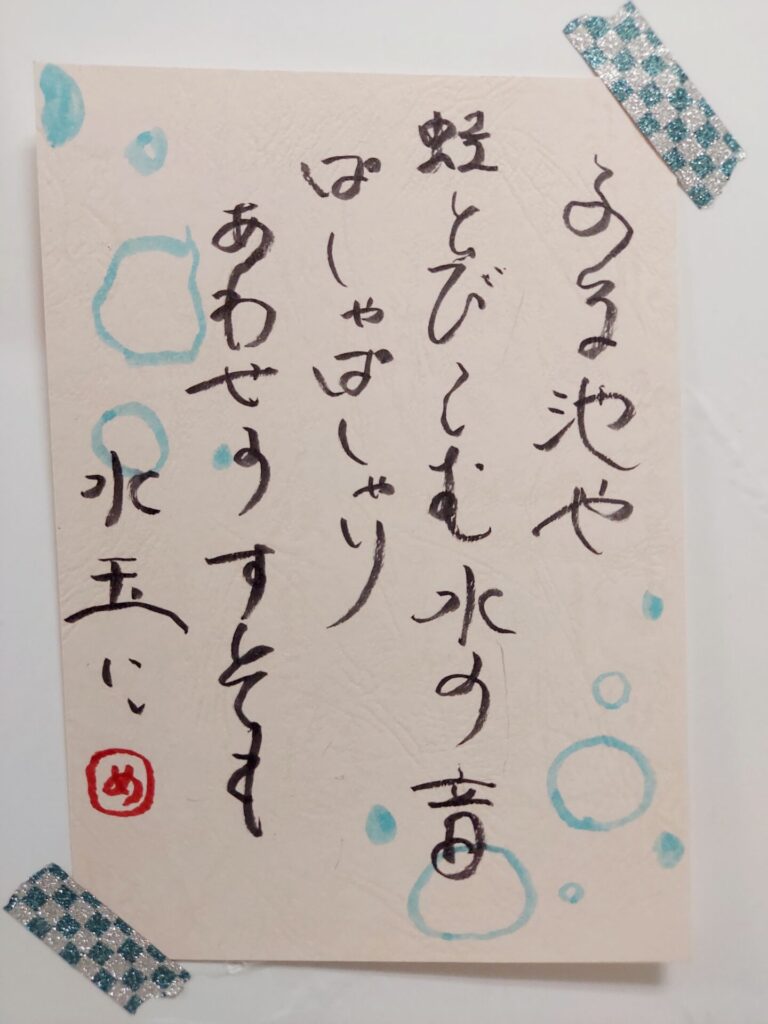 ふる池や
蛙とびこむ水の音
ぱしゃぱしゃり
あわせのすそも
水玉に
め